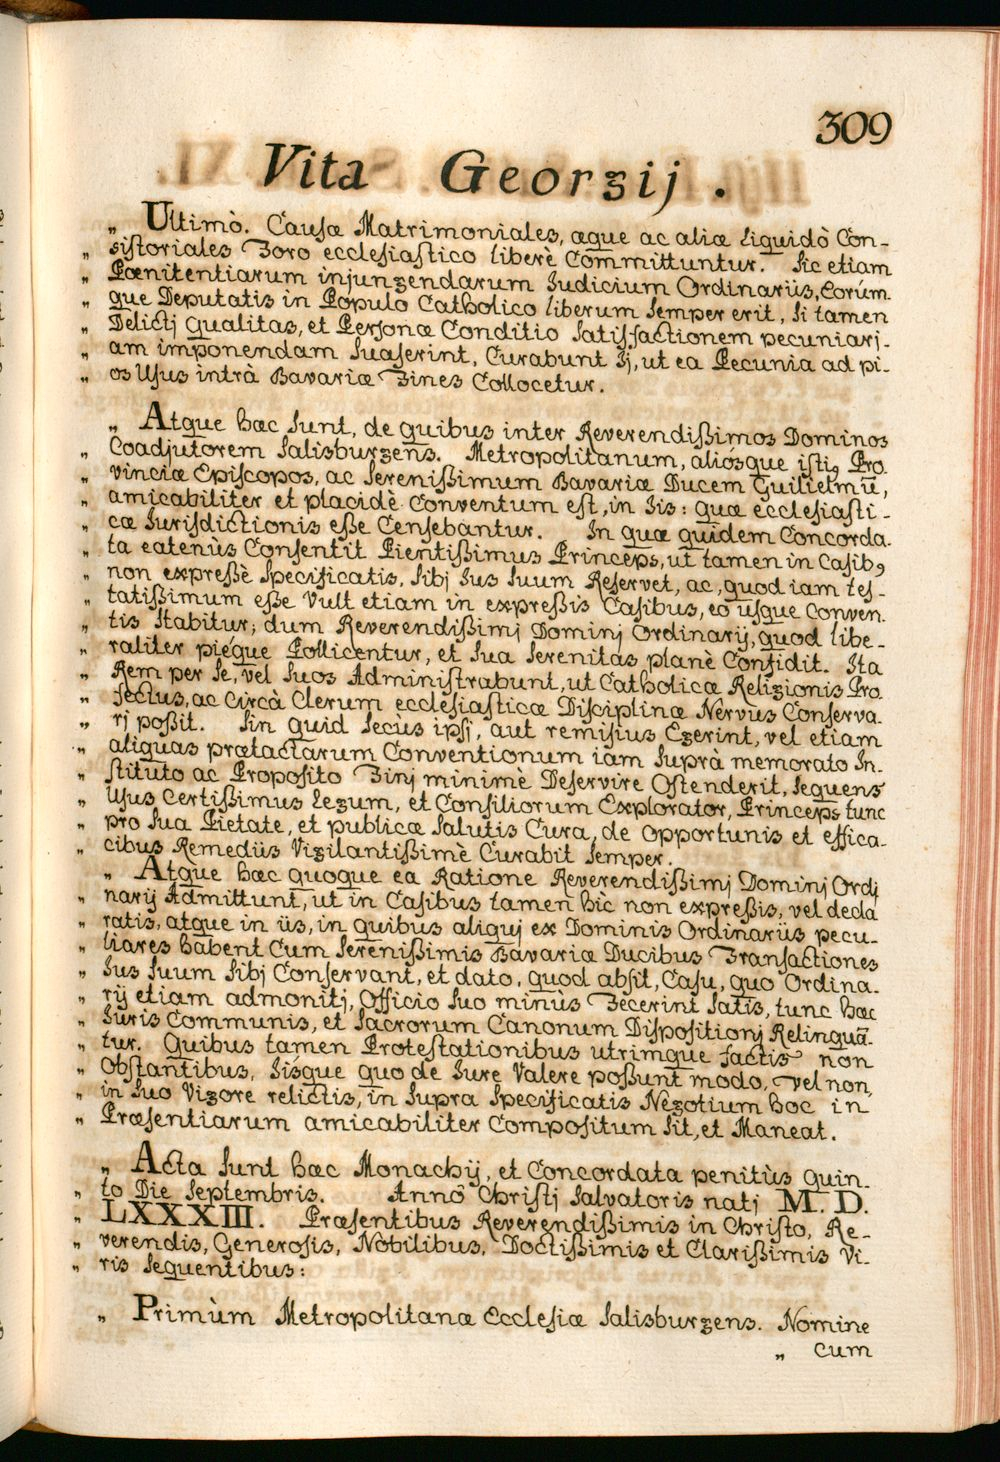 309
Vita Georgij.
„ Ultimò. Causæ Matrimoniales, æque ac aliæ liquidò Con-
„ sistoriales Foro ecclesiastico liberè Committuntur. Sic etiam
„ Pœnitentiarum injungendarum Judicium Ordinariis, Eorúm
„ que Deputatis in Populo Catholico liberum semper erit, si tamen
„ Delicti qualitas, et Personæ Conditio Satisfactionem pecuniari-
„ am imponendam Suaserint, Curabunt Ij, ut ea Pecunia ad pi-
„ os Usus intrà Bavariæ Fines Collocetur.
„ Atque hæc sunt, de quibus inter Reverendißimos Dominos
„ Coadjutorem Salisburgens. Metropolitanum, aliósque istiꝰ Pro
„ vinciæ Episcopos, ac Serenißimum Bavariæ Ducem Guilielmū,
„ amicabiliter et placidè Conventum est, in Iis: quæ ecclesiasti-
„ cæ Jurisdictionis eße Censebantur. In quæ quidem Concorda-
„ ta eatenùs Consentit Pientißimus Princeps, ut tamen in Casibꝰ
„ non expreßè Specificatis, sibj Jus Suum Reservet, ac, quod iam tes-
„ tatißimum eße Vult etiam in expreßis Casibus, eò usque Conven-
„ tis Stabitur; dum Reverendißimj Dominj Ordinarij, quod libe-
„ raliter piéque Pollicentur, et Sua Serenitas planè Confidit. Ita
„ Rem per Se, vel Suos Administrabunt, ut Catholicæ Religionis Pro
„ fectus, ac Circà Clerum ecclesiasticæ Disciplinæ Nervus Conserva-
„ rj poßit. Sin quid Secùs ipsj, aut remisius Egerint, vel etiam
„ aliquas prætactarum Conventionum iam Suprà memorato In-
„ stituto ac Proposito Finj minimè Deservire Ostenderit, Sequens
„ Usus Certißimus Legum, et Consiliorum Explorator, Princeps tunc
„ pro Sua Pietate, et publicæ Salutis Cura, de opportunis et effica-
„ cibus Remediis Vigilantißimè Curabit Semper.
„ Atque hæc quoque ea Ratione Reverendißimj Dominj Ordi
„ narij Admittunt, ut in Casibus tamen hìc non expreßis, vel decla
„ ratis, atque in iis, in quibus aliquj ex Dominis Ordinariis pecu-
„ liares habent Cum Serenißimis Bavariæ Ducibus Transactiones
„ Jus Suum Sibj Conservant, et dato, quod absit, Casu, quo Ordina-
„ rij etiam admonitj, Officio Suo minùs Fecerint Satis, tunc hæc
„ Juris Communis, et Sacrorum Canonum Dispositionj Relinquā-
„ tur. Quibus tamen Protestationibus utrimque factis non
„ Obstantibus, Iisque quo de Jure Valere poßunt modo, vel non,
„ in Suo Vigore relictis, in Supra Specificatis Negotium hoc in
„ Præsentiarum amicabiliter Compositum Sit, et Maneat.
„ Acta Sunt hæc Monachij, et Concordata penitùs quin-
„ to Die Septembris. Annô Christj Salvatoris natj M. D.
„ LXXXIII. Præsentibus Reverendißimis in Christo, Re-
„ verendis, Generosis, Nobilibus, Doctißimis et Clarißimis Vi-
„ ris Sequentibus:
„ Primùm Metropolitanæ Ecclesiæ Salisburgens. Nomine
„ cum